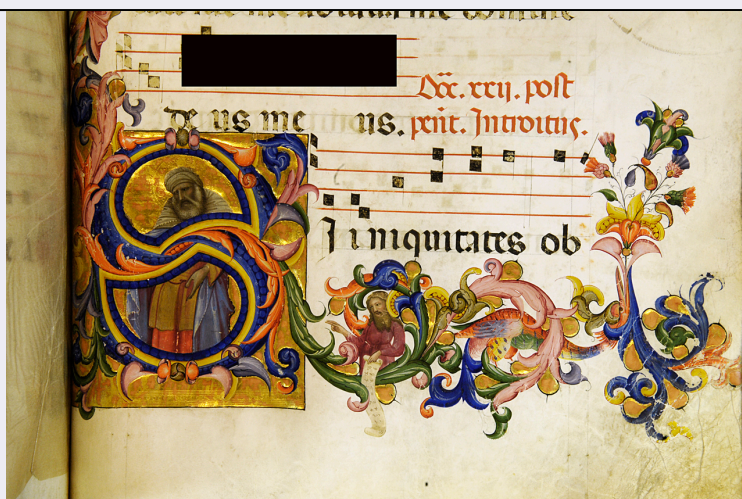 Dōc. xxij. post
de us me us. pent̄. Introitus.
S I iniquitates ob